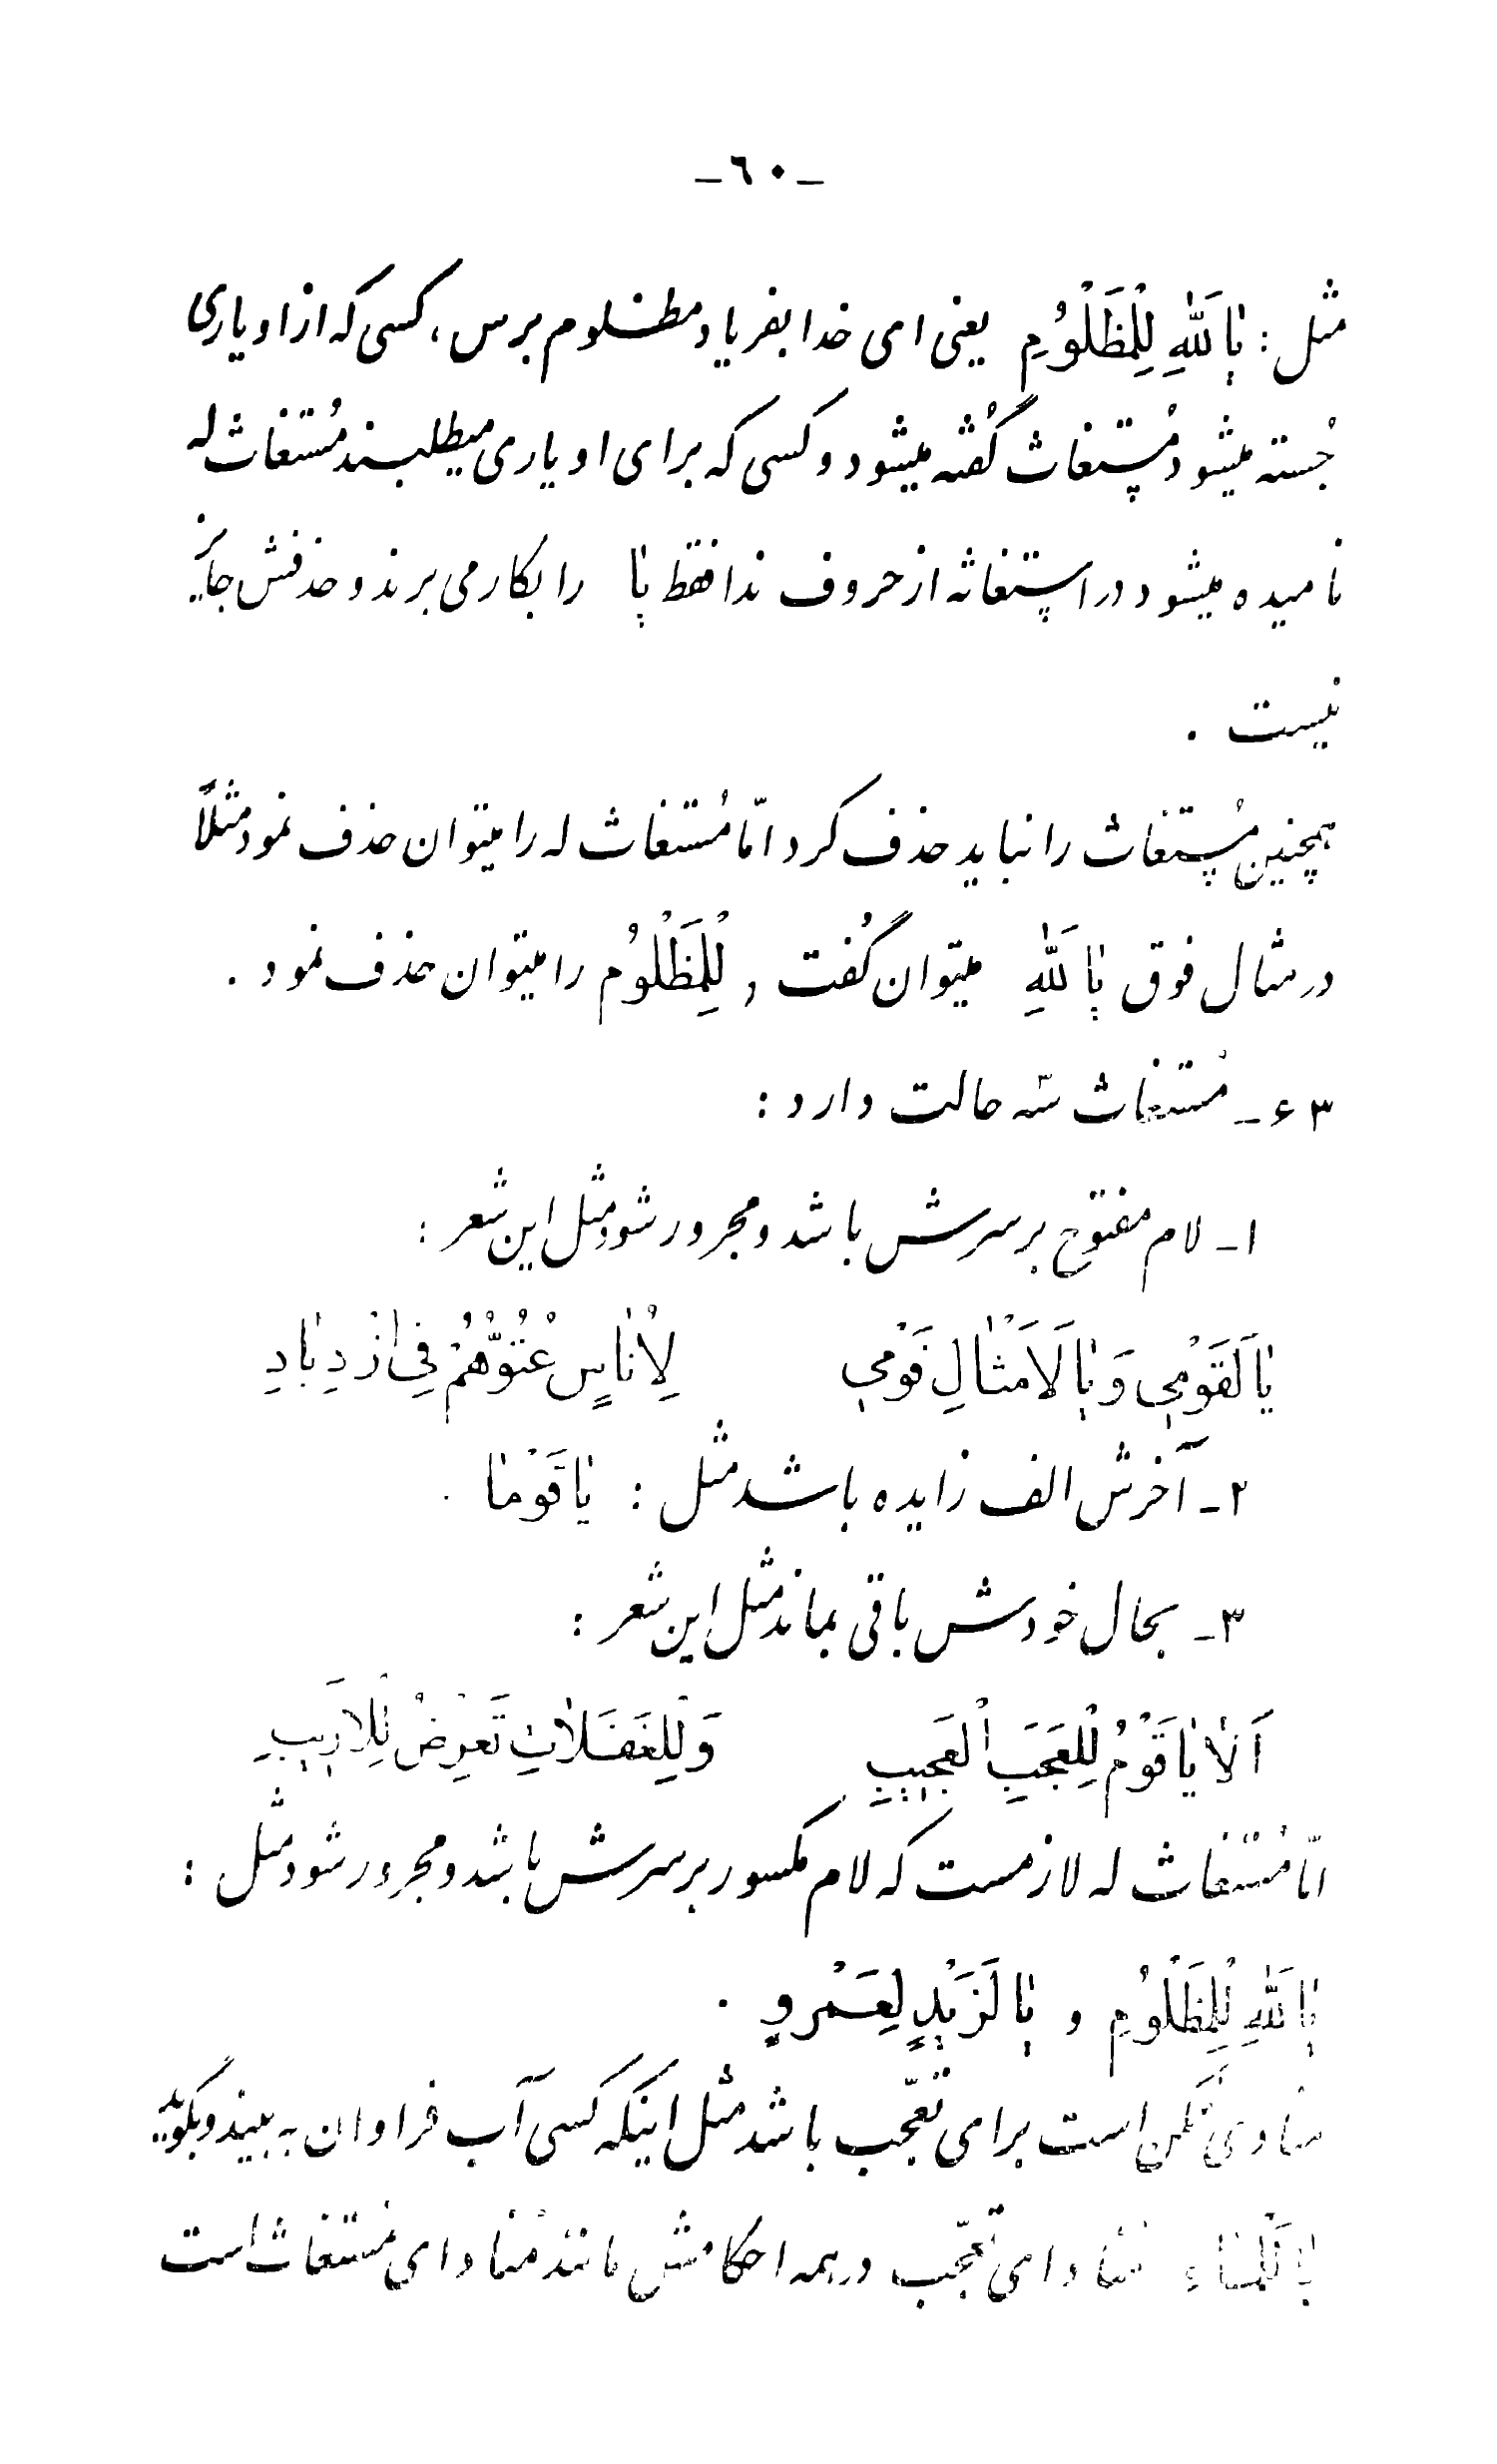 -٦٠-
مثل : یٰاَللّٰهِ لِلْمَظْلُوْمِ یعنی ای خدا بفریاد مظلوم برس ، کسی که از او یاری
جُسته میشود مُستغاث گفته میشود و کسی که برای او یاری میطلبند مُستغاث له
نامیده میشود در استغاثه از حروف ندا فقط یٰا را بکار می برند و حذفش جائز
نیست .
همچنین مُستغاث را نباید حذف کرد امّا مُستغاث له را میتوان حذف نمود مثلاً
در مثال فوق یٰاَللّٰهِ میتوان گفت و لِلْمَظْلُوْم را میتوان حذف نمود .
۶۳ - مُستغاث سه حالت دارد :
۱- لام مفتوح بر سرش باشد و مجرور شود مثل این شعر :
یٰا لَقَوْمٖی وَ یٰا لَاَمْثٰالِ قَوْمٖی لِاُنٰاسٍ عُتُوُّهُمْ فِی ازْدِیٰادِ
۲- آخرش الف زایده باشد مثل : یٰا قَوْمٰا .
۳- بحال خودش باقی بماند مثل این شعر :
اَلٰا یٰا قَوْمُ لِلْعَجَبِ الْعَجٖیبِ وَ لِلْغَفَلٰاتِ تَعْرِضُ لِلْاَرٖیبِ
امّا مُستغاث له لازمست که لام مکسور بر سرش باشد و مجرور شود مثل :
یٰاَللّٰهِ لِلْمَظْلُوْمِ و یٰا لَزَیْدٍ لِعَمْروٍ .
منادی ممکن است برای تعجّب باشد مثل اینکه کسی آب فراوان به بیند و بگوید
یٰا لَلْمٰاءِ منادای تعجّب در همه احکامش مانند مُنادای مُستغاث است